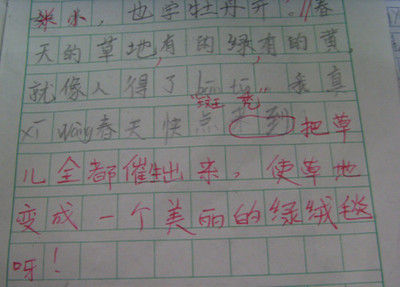 米小，也学牡丹开。"春
天的草地，有的绿，有的黄，
就像人得了bān tū，我真
斑秃
xī wàng春天快点 到 把草
儿全都催生出来，使草地
变成一个美丽的绿绒毯
呀！